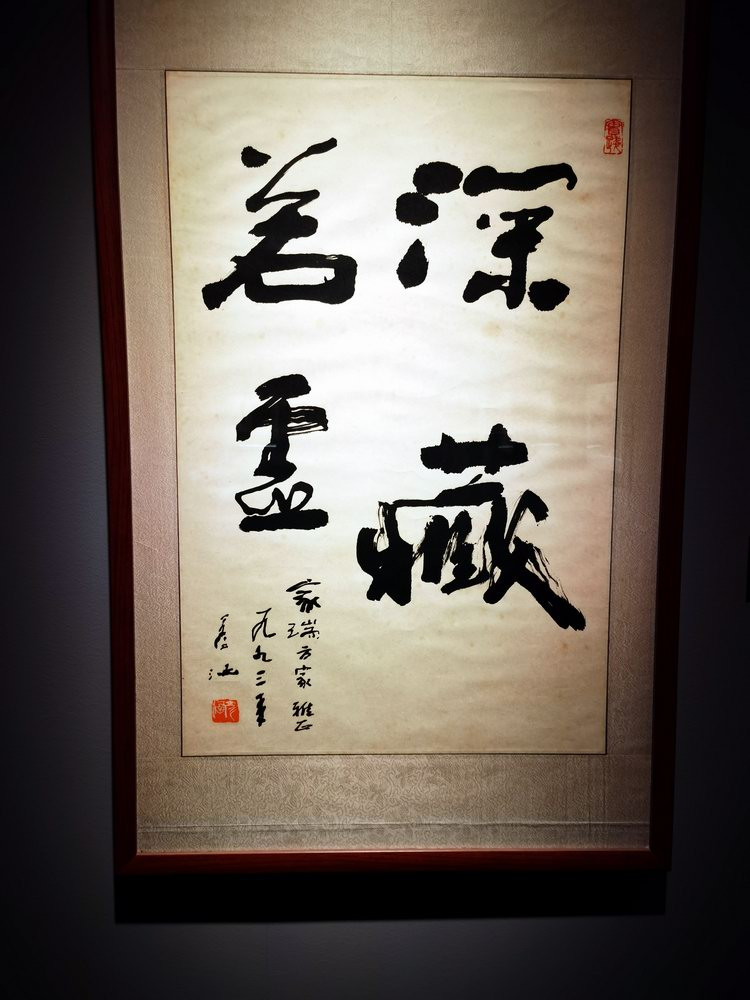 深藏
若虚
家瑞方家雅正
一九九二年
彦涵